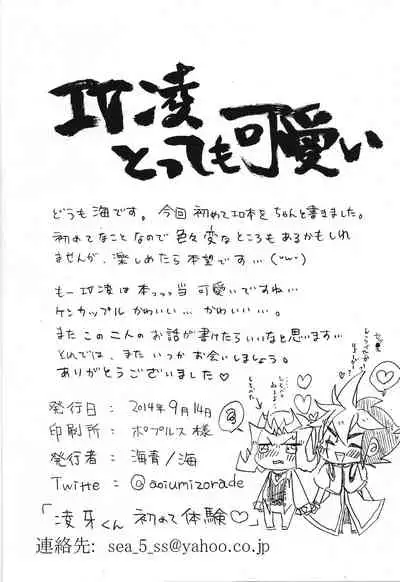 IV凌
とっても可愛い
どうも海です。今回初めてエロ本をちゃんと書きました。
初めてなことなので色々変なところもあるかもしれ
ませんが、楽しめたら本望です…(˘ω˘)
もーIV凌は本っっっ当可愛いですね…
ケンカップルかわいい…。かわいい…。
またこの二人のお話が書けたらいいなと思います…
それでは、またいつかお会いしましょう。
ありがとうございました♡
発行日:2014年9月14日
印刷所:ポプルス様
発行者:海青/海
Twitte:@aoiumizorade
「凌牙くん初めて体験♡」
連絡先: sea_5_ss@yahoo.co.jp